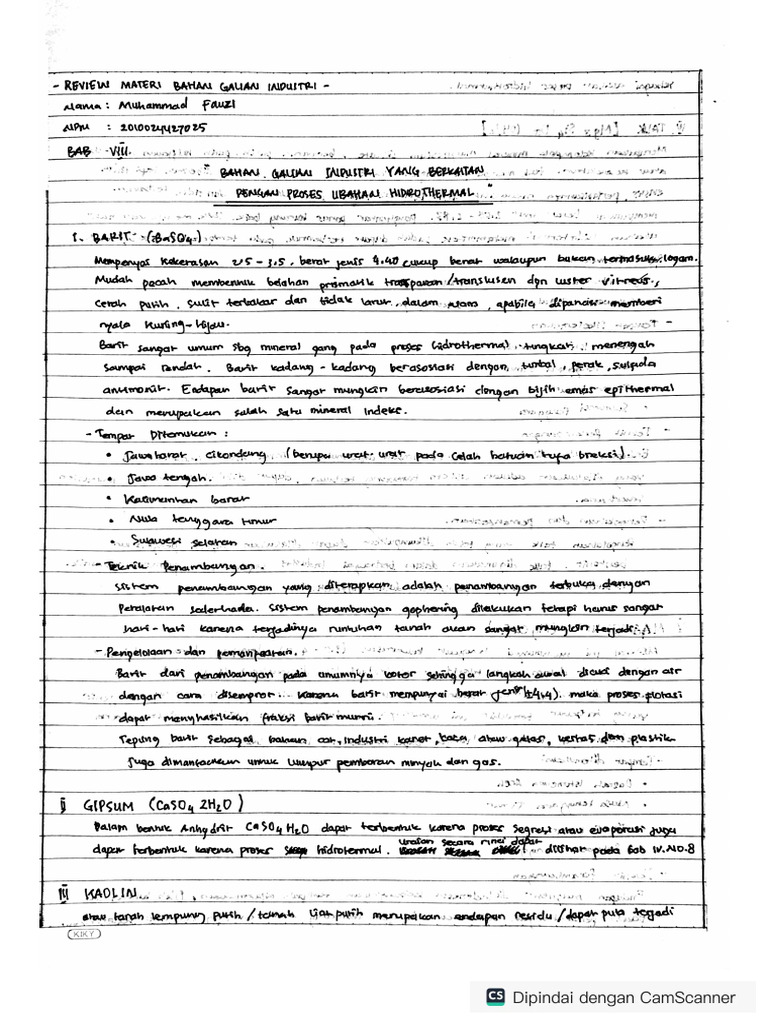 - REVIEW MATERI BAHAN GALIAN INDUSTRI -
Nama : Muhammad Fauzi
NPM : 2010024427025
BAB VIII.
" BAHAN GALIAN INDUSTRI YANG BERKAITAN
DENGAN PROSES UBAHAN HIDROTHERMAL "
I. BARIT (BaSO4)
Mempunyai kekerasan 2,5 - 3,5, berat jenis 4.40 cukup berat walaupun bukan termasuk logam.
Mudah pecah membentuk belahan prismatik transparan/transkusen dgn luster vitreus,
cerah putih, sulit terbakar dan tidak larut dalam asam, apabila dipanasi memberi
nyala kuning-hijau.
Barit sangat umum sbg mineral gang pada proses hidrothermal tingkat menengah
sampai rendah. Barit kadang-kadang berasosiasi dengan timbal, perak, sulpida
antimonit. Endapan barit sangat mungkin berasosiasi dengan bijih emas epithermal
dan merupakan salah satu mineral indeks.
- Tempat Ditemukan :
• Jawa barat, cikondang (berupa urat-urat pada celah batuan tufa breksi).
• Jawa tengah.
• Kalimantan barat
• Nusa tenggara timur
• Sulawesi selatan
- Teknik Penambangan.
Sistem penambangan yang diterapkan adalah penambangan terbuka dengan
Peralatan sederhada. Sistem penambangan gophering dilakukan tetapi harus sangat
hari-hati karena terjadinya runtuhan tanah akan sangat mungkin terjadi.
- Pengelolaan dan pemanfaatan.
Barit dari penambangan pada umumnya kotor sehingga langkah awal dicuci dengan air
dengan cara disemprot. Karena barit mempunyai berat jenis (±4,4). maka proses flotasi
dapat menghasilkan fraksi barit murni.
Tepung barit sebagai bahan cat, industri karet, kaca atau gelas, kertas dan plastik
Juga dimanfaatkan untuk lumpur pemboran minyak dan gas.
II GIPSUM (CaSO4 2H2O)
Dalam bentuk Anhydrit CaSO4 H2O dapat terbentuk karena proses segresi atau evaporasi juga
dapat terbentuk karena proses hidrotermal. uraian secara rinci dapat dilihat pada Bab IV.NO.8
III KAOLIN
atau tanah lempung putih / tanah liat putih merupakan endapan residu / dapat pula tegadi
KIKY
CS Dipindai dengan CamScanner